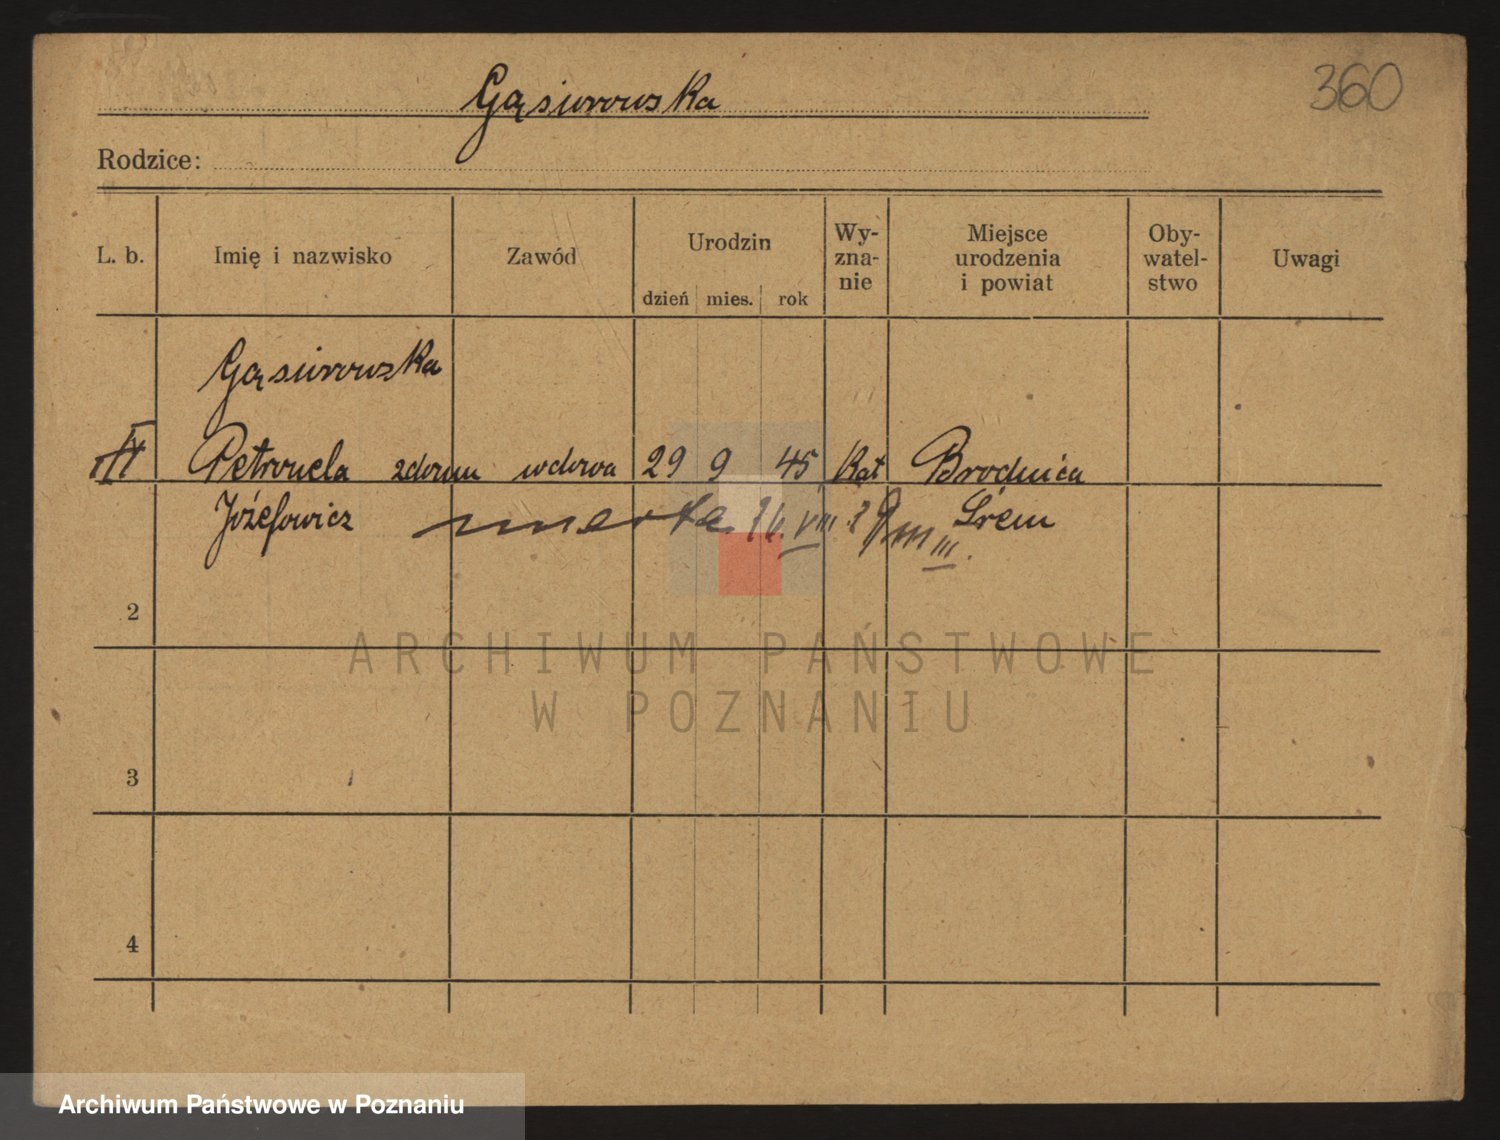 Gąsiorowska
360
Rodzice:
L. b. Imię i nazwisko Zawód Urodzin dzień mies. rok Wy-zna-nie Miejsce urodzenia i powiat Oby-watel-stwo Uwagi
Gąsiorowska
Petronela zdomu wdowa 29 9 45 Kat Brodnica
Józefowicz zmarła VIII Śrem
2
ARCHIWUM PAŃSTWOWE
W POZNANIU
3
4
Archiwum Państwowe w Poznaniu